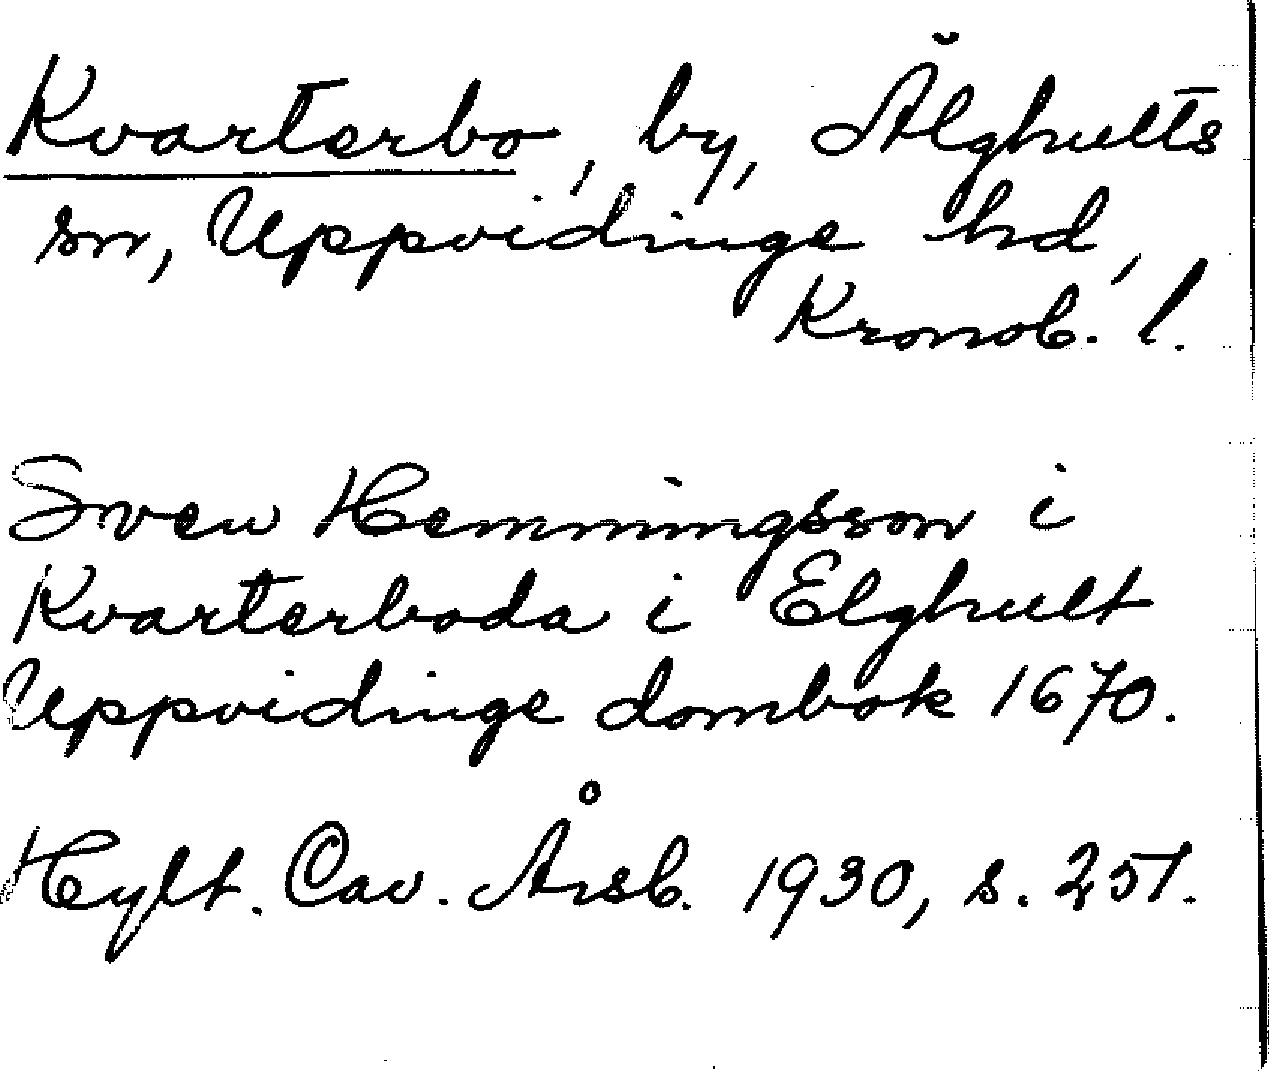 Kvarterbo, by, Älghults
sn, Uppvidinge hd,
Kronob. l.
Sven Hemmingsson i
Kvarterboda i Elghult
Uppvidinge dombok 1670.
Hylt. Cav. Årsb. 1930, s. 251.